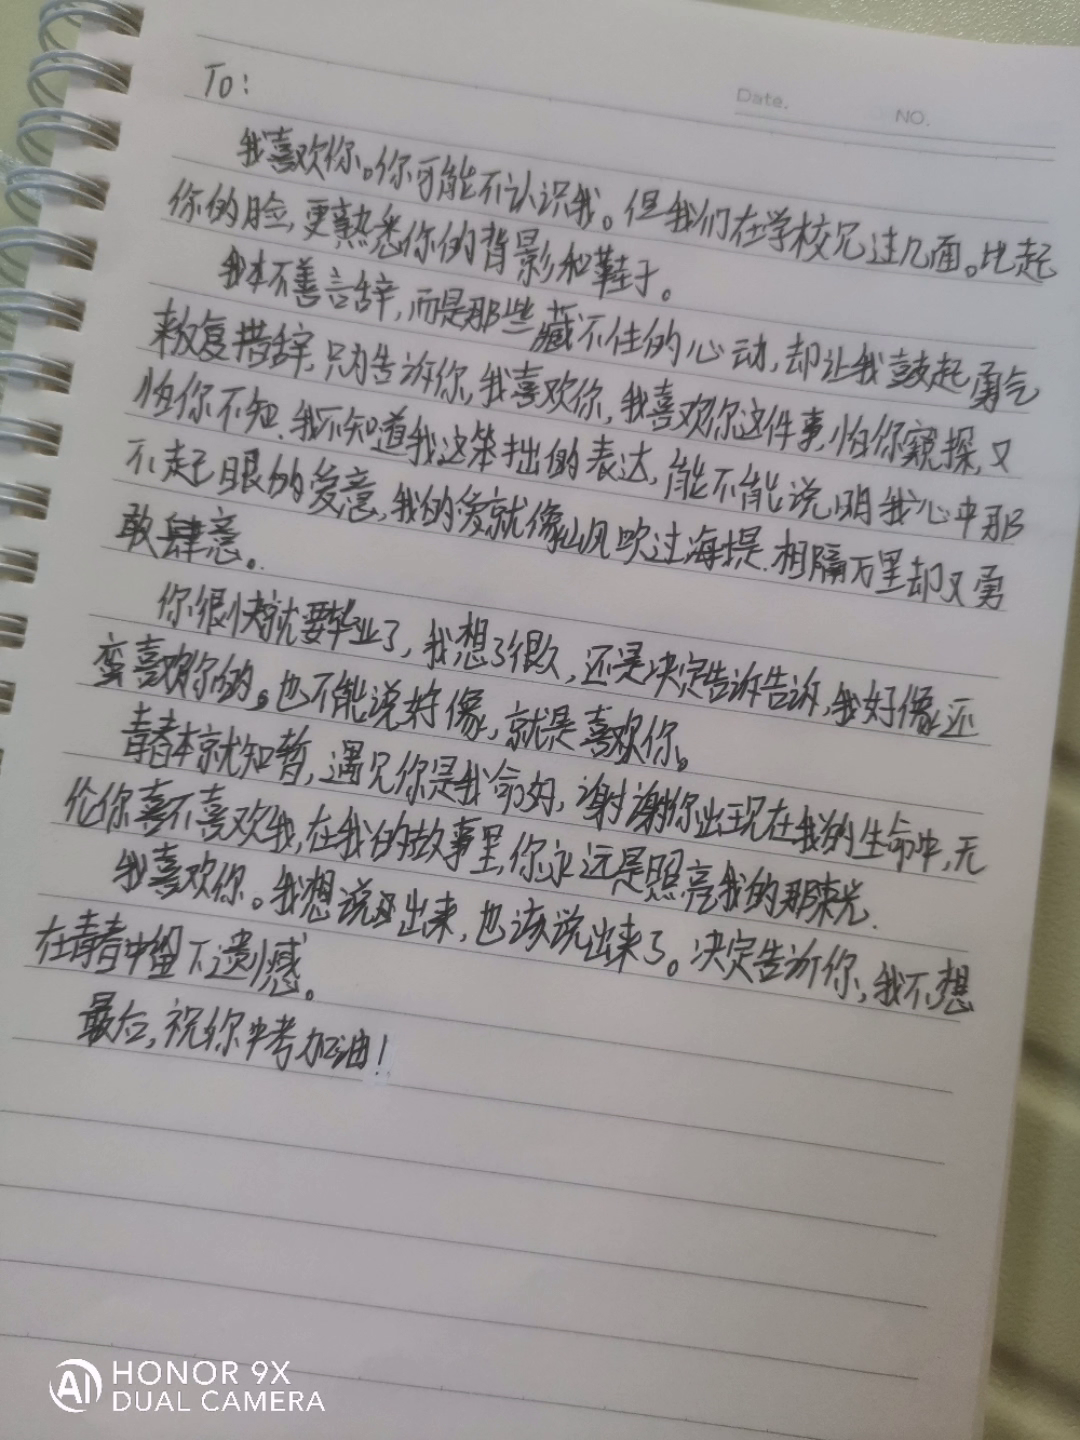 Date.
NO.
TO:
我喜欢你。你可能不认识我。但我们在学校见过几面。比起
你的脸,更熟悉你的背影和鞋子。
我本不善言辞,而是那些藏不住的心动,却让我鼓起勇气
来反复措辞,只为告诉你,我喜欢你,我喜欢你这件事,怕你窥探,又
怕你不知、我不知道我这笨拙的表达,能不能说明我心中那
不起眼的爱意,我的爱就像山风吹过海堤.相隔万里却又勇
敢肆意。
你很快就要毕业了,我想了很久,还是决定告诉告诉,我好像还
蛮喜欢你的。也不能说好像,就是喜欢你。
青春本就知暂,遇见你是我命好,谢谢你出现在我的生命中,无
伦你喜不喜欢我,在我的故事里,你永远是照亮我的那束光.
我喜欢你。我想说出来,也该说出来了。决定告诉你,我不想
在青春中留下遗憾。
最后,祝你中考加油!
AI HONOR 9X
DUAL CAMERA